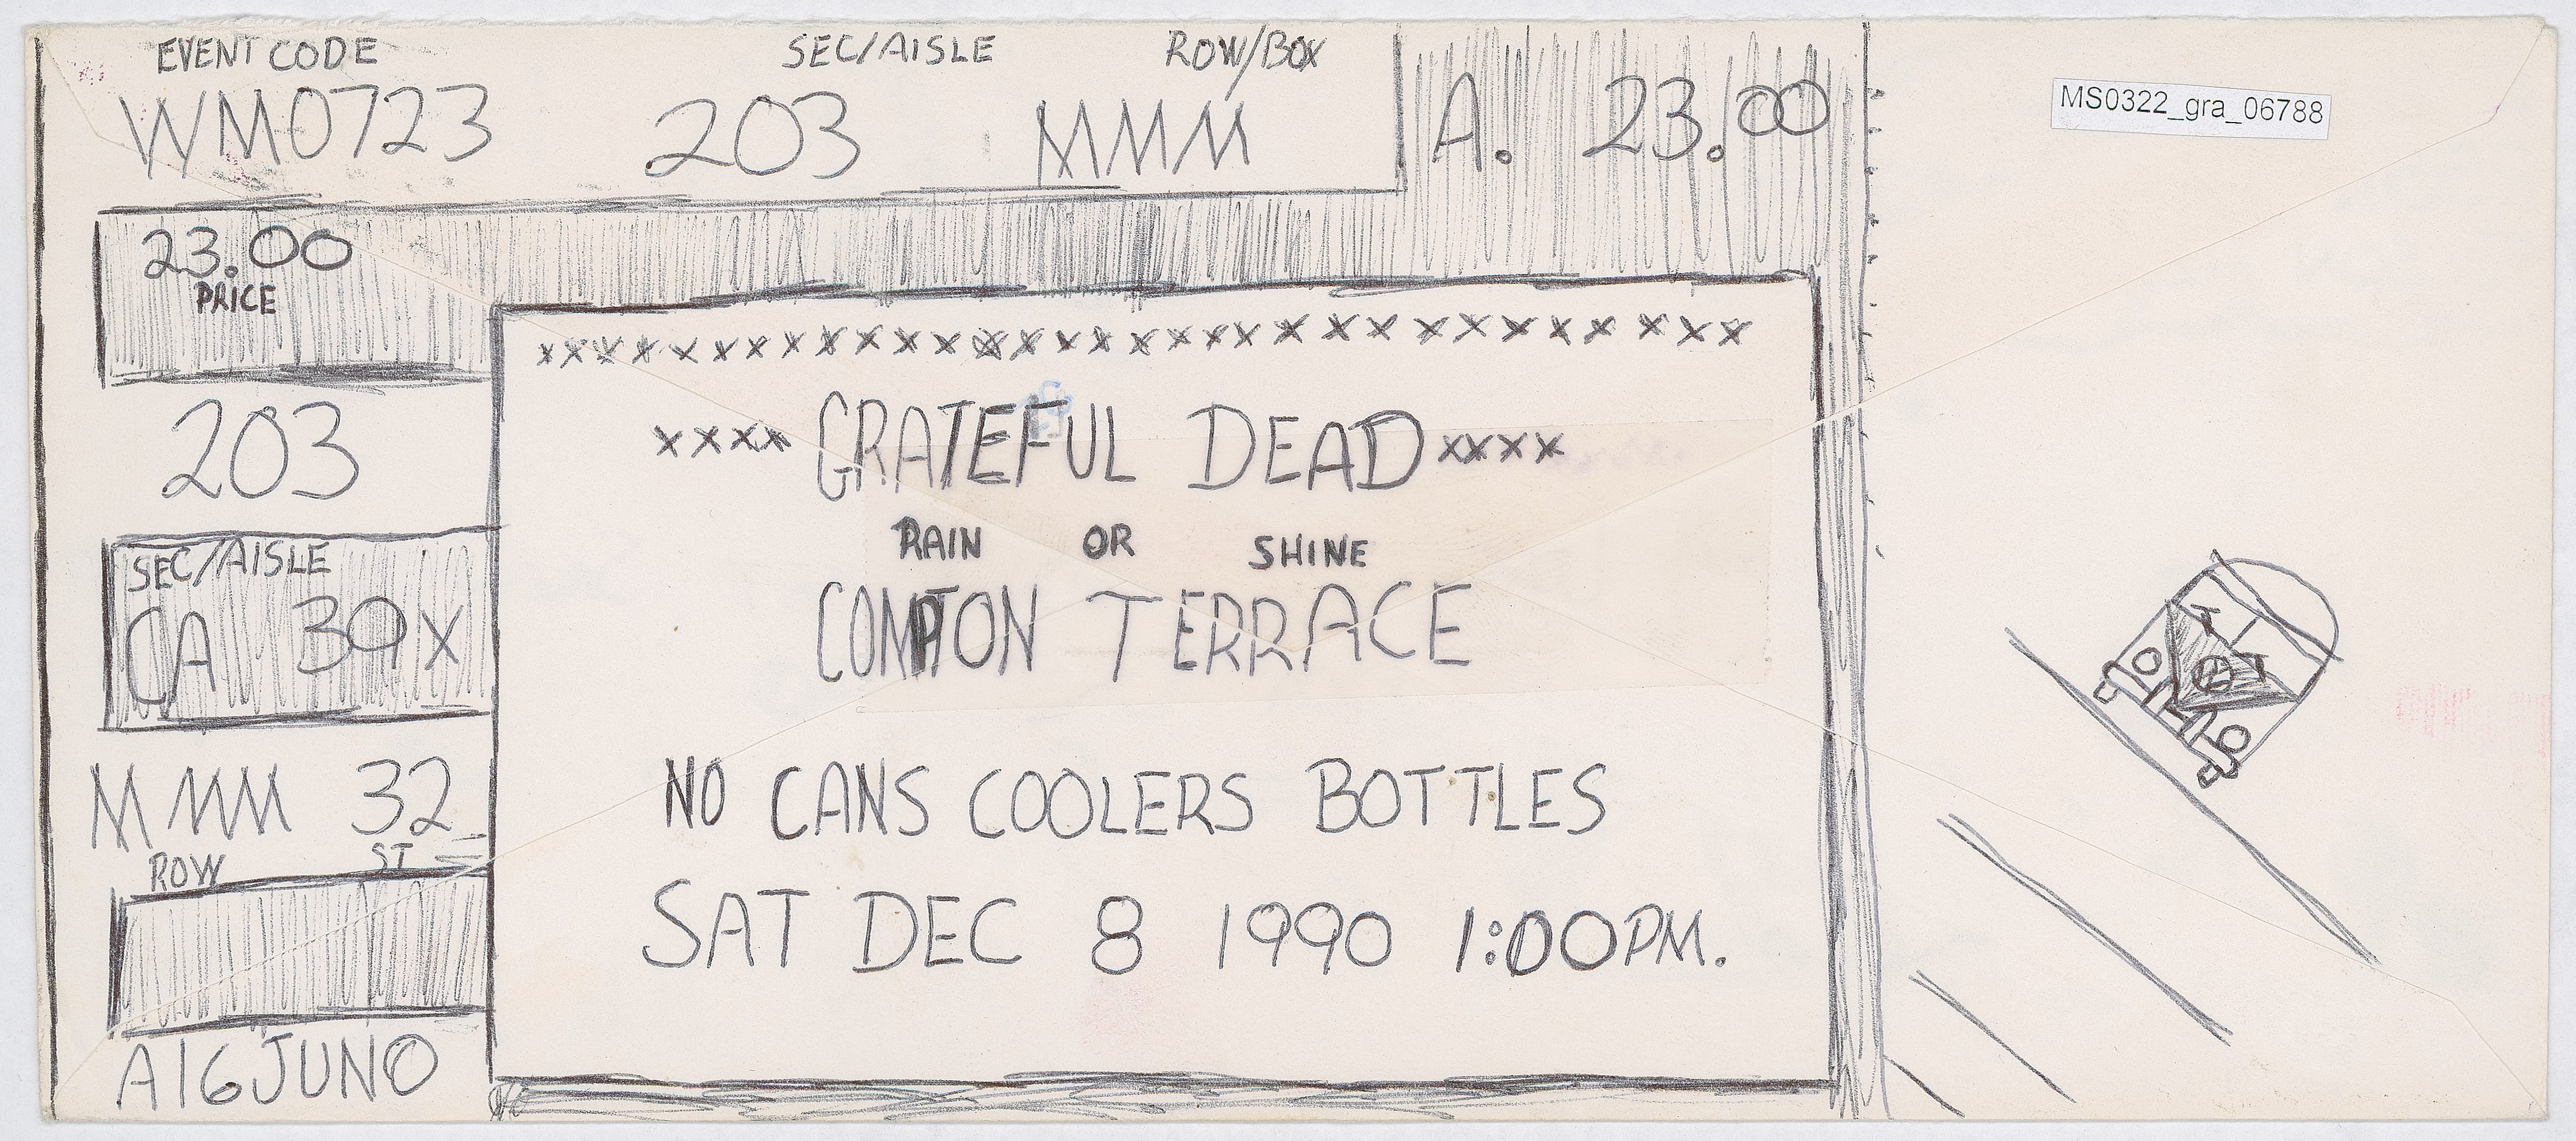 EVENT CODE SEC/AISLE ROW/BOX
WM0723 203 MMM A. 23.00
MS0322_gra_06788
23.00
PRICE
xxxxxxxxxxxxxxxxxxxxxxxxxxxxxx
203
xxxx GRATEFUL DEAD xxxx
RAIN OR SHINE
COMPTON TERRACE
SEC/AISLE
CA 39X
MMM 32
ROW ST
NO CANS COOLERS BOTTLES
SAT DEC 8 1990 1:00PM.
A16JUN0